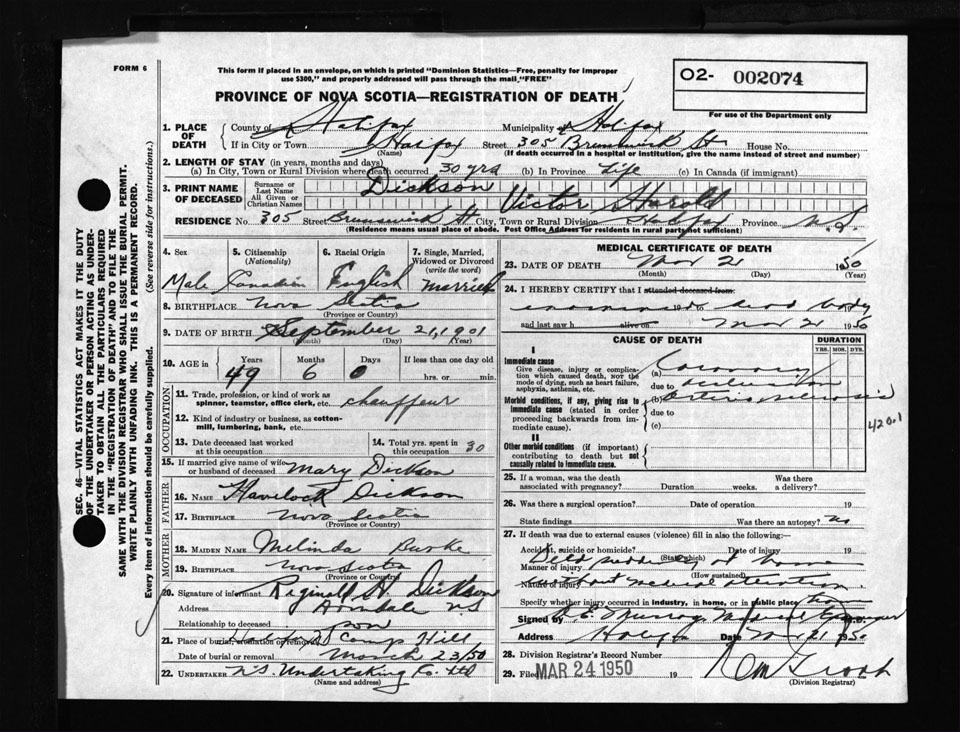 FORM 6
This form if placed in an envelope, on which is printed "Dominion Statistics—Free, penalty for improper
use $300," and property addressed will pass through the mail, "FREE"
O2- 002074
For use of the Department only
PROVINCE OF NOVA SCOTIA—REGISTRATION OF DEATH
1. PLACE OF DEATH County of Halifax Municipality of Halifax
If in City or Town Halifax Street 305 Brunswick St House No.
(Name) (If death occurred in a hospital or institution, give the name instead of street and number)
2. LENGTH OF STAY (in years, months and days)
(a) In City, Town or Rural Division where death occurred 30 yrs (b) In Province Life (c) In Canada (if immigrant)
3. PRINT NAME OF DECEASED Surname or Last Name Dickson
All Given or Christian Names Victor Harold
RESIDENCE No. 305 Street Brunswick St City, Town or Rural Division Halifax Province N.S.
(Residence means usual place of abode. Post Office Address for residents in rural parts not sufficient)
4. Sex 5. Citizenship (Nationality) 6. Racial Origin 7. Single, Married, Widowed or Divorced (write the word)
Male Canadian English married
8. BIRTHPLACE Nova Scotia
(Province or Country)
9. DATE OF BIRTH September 21, 1901
(Month) (Day) (Year)
10. AGE in Years Months Days If less than one day old
49 6 0 hrs. or min.
OCCUPATION
11. Trade, profession, or kind of work as spinner, teamster, office clerk, etc. chauffeur
12. Kind of industry or business, as cotton-mill, lumbering, bank, etc.
13. Date deceased last worked at this occupation 14. Total yrs. spent in this occupation 30
15. If married give name of wife or husband of deceased Mary Dickson
FATHER
16. NAME Havelock Dickson
17. BIRTHPLACE Nova Scotia
(Province or Country)
MOTHER
18. MAIDEN NAME Melinda Burke
19. BIRTHPLACE Nova Scotia
(Province or Country)
20. Signature of informant Reginald H. Dickson
Address Armdale NS
Relationship to deceased son
21. Place of burial, cremation or removal Camp Hill
Date of burial or removal March 23/50
22. UNDERTAKER N.S. Undertaking Co. Ltd
(Name and address)
MEDICAL CERTIFICATE OF DEATH
23. DATE OF DEATH Mar 21 1950
(Month) (Day) (Year)
24. I HEREBY CERTIFY that I attended deceased from:
examined dead body
and last saw h alive on Mar 21 1950
CAUSE OF DEATH DURATION
YRS. MOS. DYS.
I
Immediate cause
Give disease, injury or complication which caused death, NOT the mode of dying, such as heart failure, asphyxia, asthenia, etc.
(a) Coronary
due to occlusion
Morbid conditions, if any, giving rise to immediate cause (stated in order proceeding backwards from immediate cause).
(b) Arteriosclerosis
due to
(c)
420.1
II
Other morbid conditions (if important) contributing to death but not causally related to immediate cause.
25. If a woman, was the death associated with pregnancy? Duration weeks. Was there a delivery?
26. Was there a surgical operation? Date of operation 19
State findings Was there an autopsy? no
27. If death was due to external causes (violence) fill in also the following:
Accident, suicide or homicide? Date of injury 19
(State which)
Manner of injury Died suddenly at home
(How sustained)
Nature of injury without medical attention.
Specify whether injury occurred in industry, in home, or in public place
Signed by Medical Examiner M.D.
Address Halifax Date Mar 21 1950
28. Division Registrar's Record Number
29. Filed MAR 24 1950 19
(Division Registrar)
SEC. 46—VITAL STATISTICS ACT MAKES IT THE DUTY
OF THE UNDERTAKER OR PERSON ACTING AS UNDER-
TAKER TO OBTAIN ALL THE PARTICULARS REQUIRED
IN THE "REGISTRATION OF DEATH" AND TO FILE THE
SAME WITH THE DIVISION REGISTRAR WHO SHALL ISSUE THE BURIAL PERMIT.
WRITE PLAINLY WITH UNFADING INK. THIS IS A PERMANENT RECORD.
Every item of information should be carefully supplied. (See reverse side for instructions.)